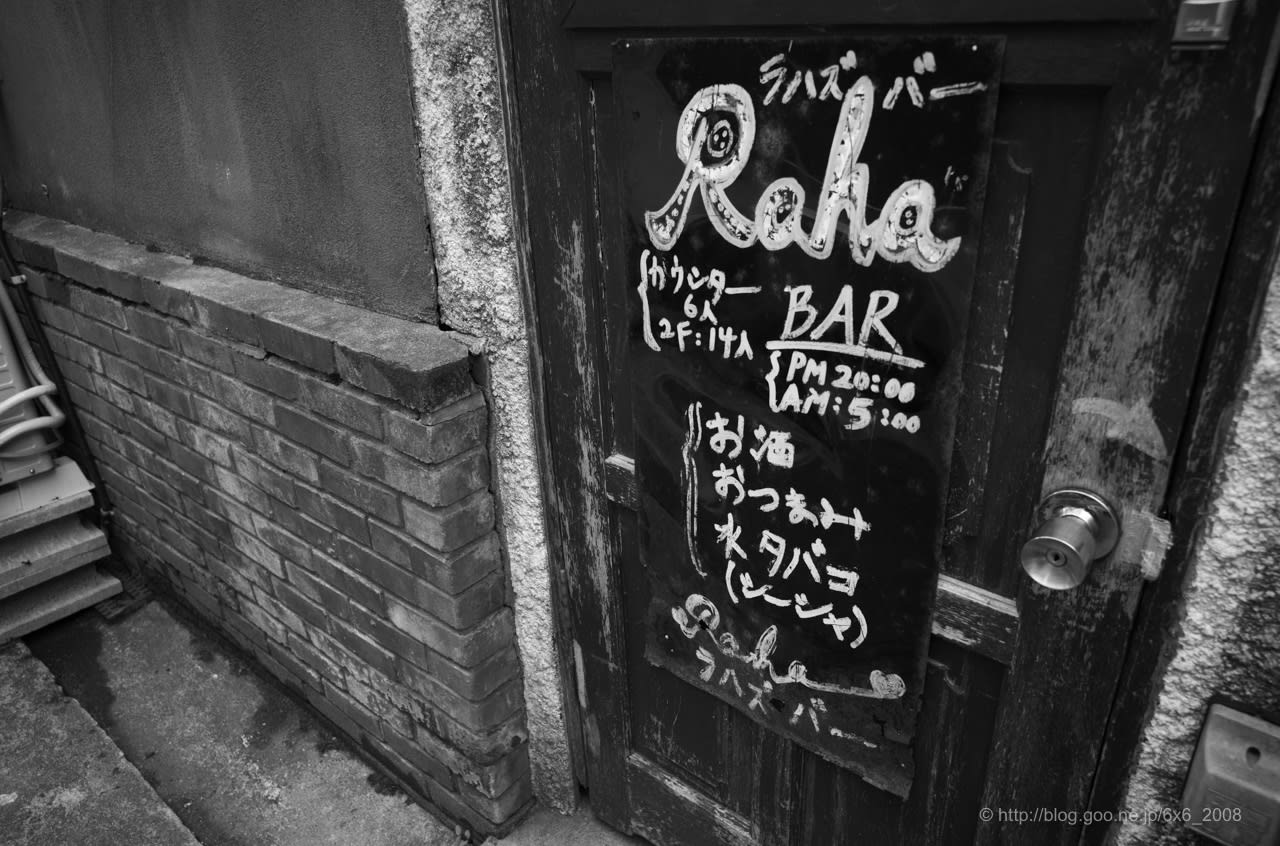 ラハズ バー
Raha's
カウンター
6人
2F:14人
BAR
PM 20:00
AM:5:00
お酒
おつまみ
水タバコ
(シーシャ)
Raha
ラハズ バー
© http://blog.goo.ne.jp/6x6_2008